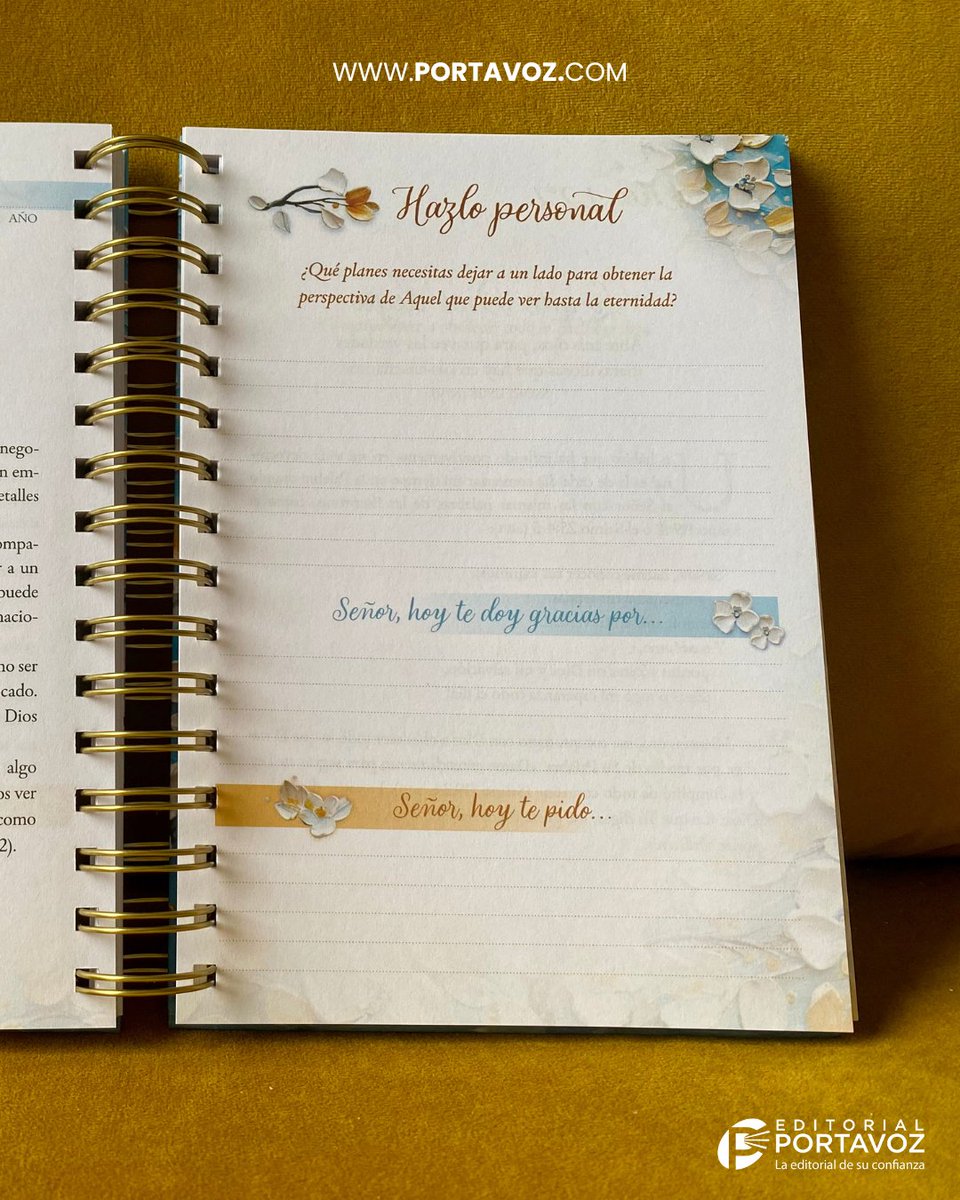 WWW.PORTAVOZ.COM
AÑO
nego-
n em-
etalles
ompa-
r a un
puede
nacio-
no ser
cado.
Dios
algo
os ver
como
2).
Hazlo personal
¿Qué planes necesitas dejar a un lado para obtener la
perspectiva de Aquel que puede ver hasta la eternidad?
Señor, hoy te doy gracias por...
Señor, hoy te pido...
EDITORIAL
PORTAVOZ
La editorial de su confianza